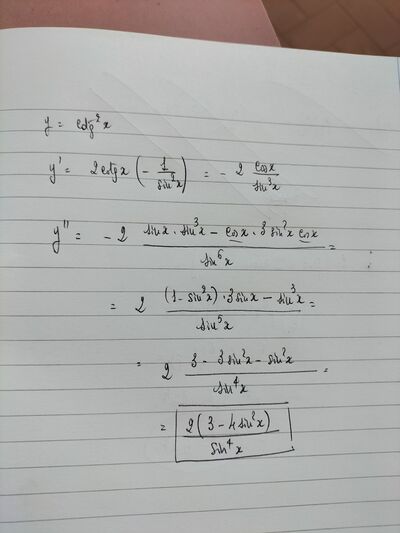 y = ctg²x
y' = 2ctgx (- 1/sin²x) = - 2 cosx/sin³x
y'' = - 2 (sinx · sin³x - cosx · 3 sin²x cosx)/sin⁶x =
= 2 ((1 - sin²x) · 3sinx - sin³x)/sin⁵x =
= 2 (3 - 3sin²x - sin²x)/sin⁴x =
= 2(3 - 4sin²x)/sin⁴x